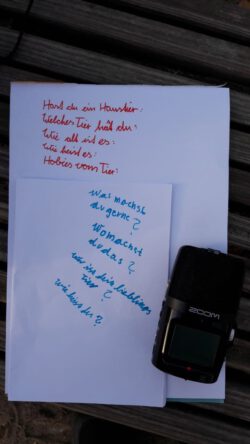 Hast du ein Haustier:
Welches Tier hat du:
Wie alt ist es:
Wie heist es:
Hobies vom Tier:
was machst
du gerne?
Womachst
du das?
wer ist dein lieblings
tier?
wie heist du?
ZOOM